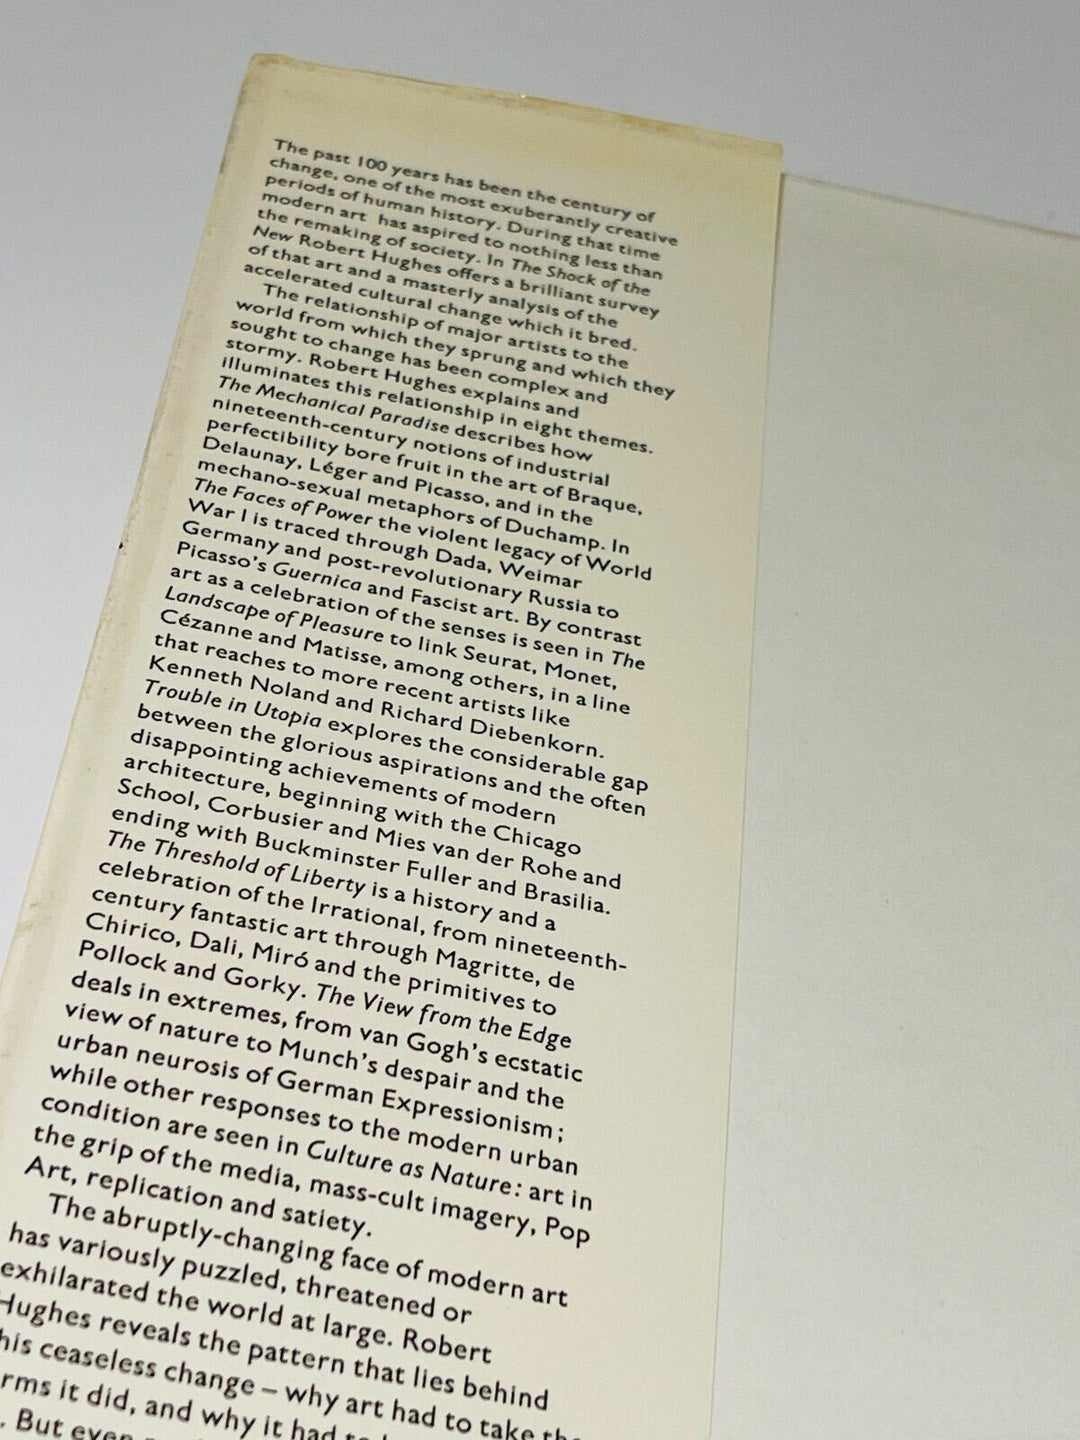 The past 100 years has been the century of
change, one of the most exuberantly creative
periods of human history. During that time
modern art has aspired to nothing less than
the remaking of society. In The Shock of the
New Robert Hughes offers a brilliant survey
of that art and a masterly analysis of the
accelerated cultural change which it bred.
The relationship of major artists to the
world from which they sprung and which they
sought to change has been complex and
stormy. Robert Hughes explains and
illuminates this relationship in eight themes.
The Mechanical Paradise describes how
nineteenth-century notions of industrial
perfectibility bore fruit in the art of Braque,
Delaunay, Léger and Picasso, and in the
mechano-sexual metaphors of Duchamp. In
The Faces of Power the violent legacy of World
War I is traced through Dada, Weimar
Germany and post-revolutionary Russia to
Picasso's Guernica and Fascist art. By contrast
art as a celebration of the senses is seen in The
Landscape of Pleasure to link Seurat, Monet,
Cézanne and Matisse, among others, in a line
that reaches to more recent artists like
Kenneth Noland and Richard Diebenkorn.
Trouble in Utopia explores the considerable gap
between the glorious aspirations and the often
disappointing achievements of modern
architecture, beginning with the Chicago
School, Corbusier and Mies van der Rohe and
ending with Buckminster Fuller and Brasilia.
The Threshold of Liberty is a history and a
celebration of the Irrational, from nineteenth-
century fantastic art through Magritte, de
Chirico, Dali, Miró and the primitives to
Pollock and Gorky. The View from the Edge
deals in extremes, from van Gogh's ecstatic
view of nature to Munch's despair and the
urban neurosis of German Expressionism;
while other responses to the modern urban
condition are seen in Culture as Nature: art in
the grip of the media, mass-cult imagery, Pop
Art, replication and satiety.
The abruptly-changing face of modern art
has variously puzzled, threatened or
exhilarated the world at large. Robert
Hughes reveals the pattern that lies behind
his ceaseless change – why art had to take the
rms it did, and why it had to
. But even